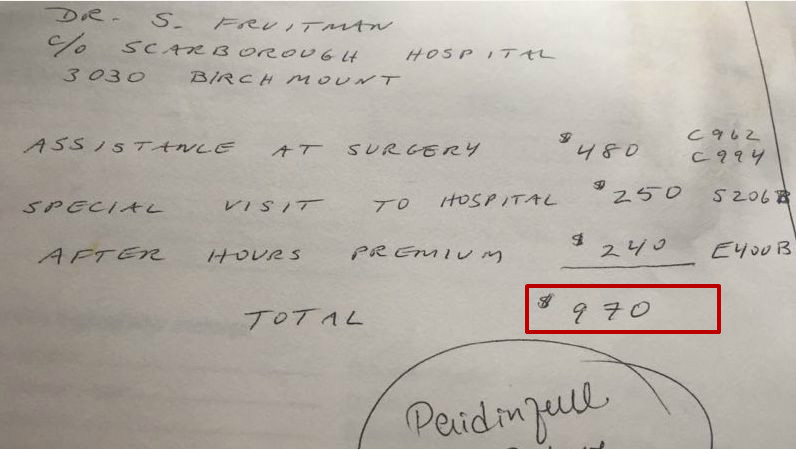 DR. S. FRUITMAN
c/o SCARBOROUGH HOSPITAL
3030 BIRCHMOUNT
ASSISTANCE AT SURGERY $480 C962
C994
SPECIAL VISIT TO HOSPITAL $250 S206B
AFTER HOURS PREMIUM $240 E400B
TOTAL $970
Paid in full